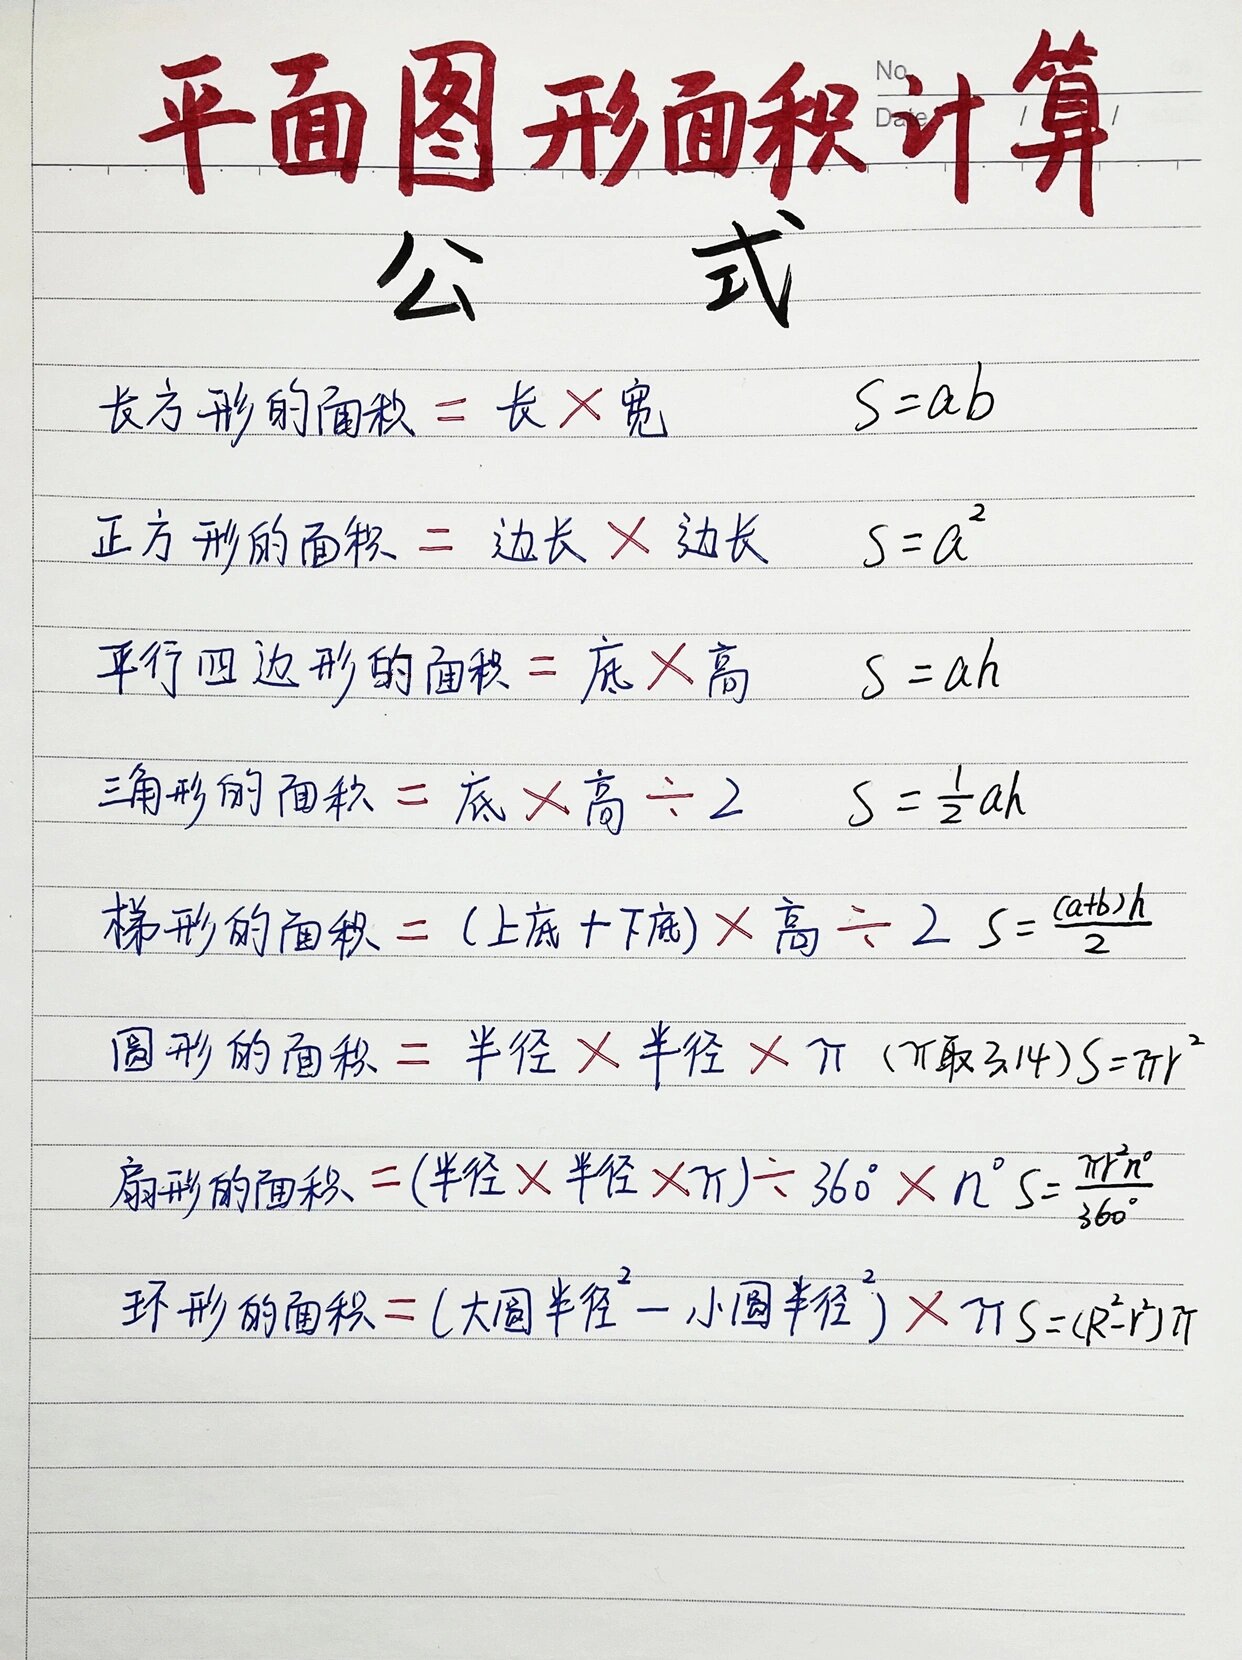 No.
Date / /
平面图形面积计算
公式
长方形的面积 = 长 × 宽 S=ab
正方形的面积 = 边长 × 边长 S=a²
平行四边形的面积 = 底 × 高 S=ah
三角形的面积 = 底 × 高 ÷ 2 S=½ah
梯形的面积 = (上底+下底) × 高 ÷ 2 S=(a+b)h/2
圆形的面积 = 半径 × 半径 × π (π取3.14) S=πr²
扇形的面积 = (半径 × 半径 × π) ÷ 360° × n° S=πr²n°/360°
环形的面积 = (大圆半径² − 小圆半径²) × π S=(R²−r²)π